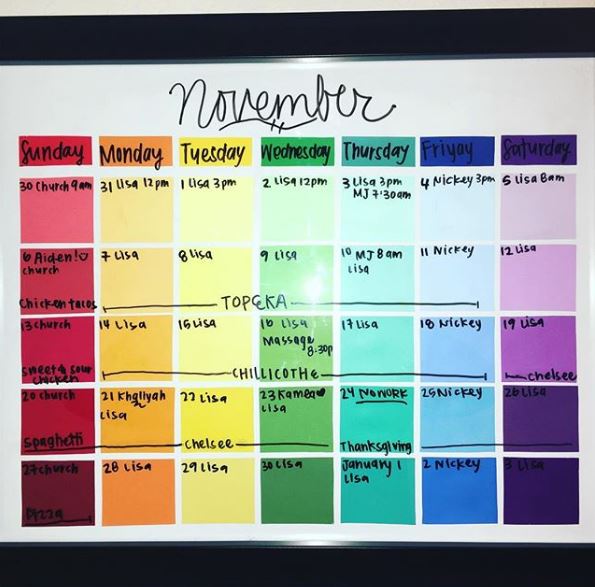 November
Sunday Monday Tuesday Wednesday Thursday Friyay Saturday
30 Church 9am
31 Lisa 12pm
1 Lisa 3pm
2 Lisa 12pm
3 Lisa 3pm
MJ 7:30am
4 Nickey 3pm
5 Lisa 8am
6 Aiden!
church
Chicken tacos
7 Lisa
8 Lisa
9 Lisa
10 MJ 8am
Lisa
11 Nickey
12 Lisa
TOPEKA
13 church
sweet & sour
chicken
14 Lisa
15 Lisa
16 Lisa
Massage
8:30p
17 Lisa
18 Nickey
19 Lisa
CHILLICOTHE
chelsee
20 church
spaghetti
21 Khaliyah
Lisa
22 Lisa
23 Kamea
Lisa
24 NO WORK
Thanksgiving
25 Nickey
26 Lisa
chelsee
27 church
Pizza
28 Lisa
29 Lisa
30 Lisa
January 1
Lisa
2 Nickey
3 Lisa